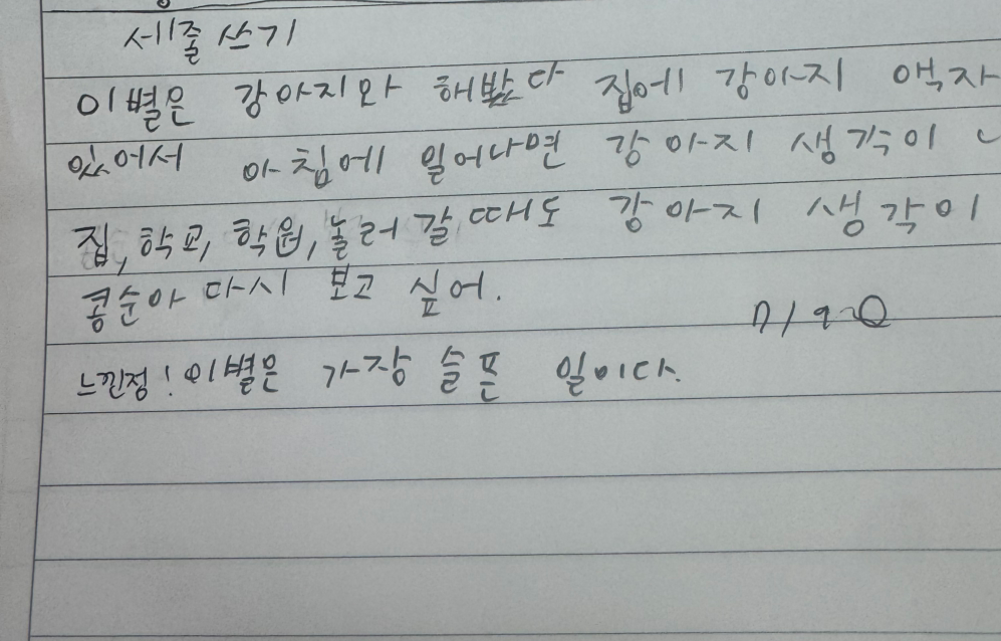 세줄쓰기
이별은 강아지와 해봤다 집에 강아지 액자
있어서 아침에 일어나면 강아지 생각이
집, 학교, 학원, 놀러갈때도 강아지 생각이
콩순아 다시 보고 싶어.
느낀점: 이별은 가장 슬픈 일이다.